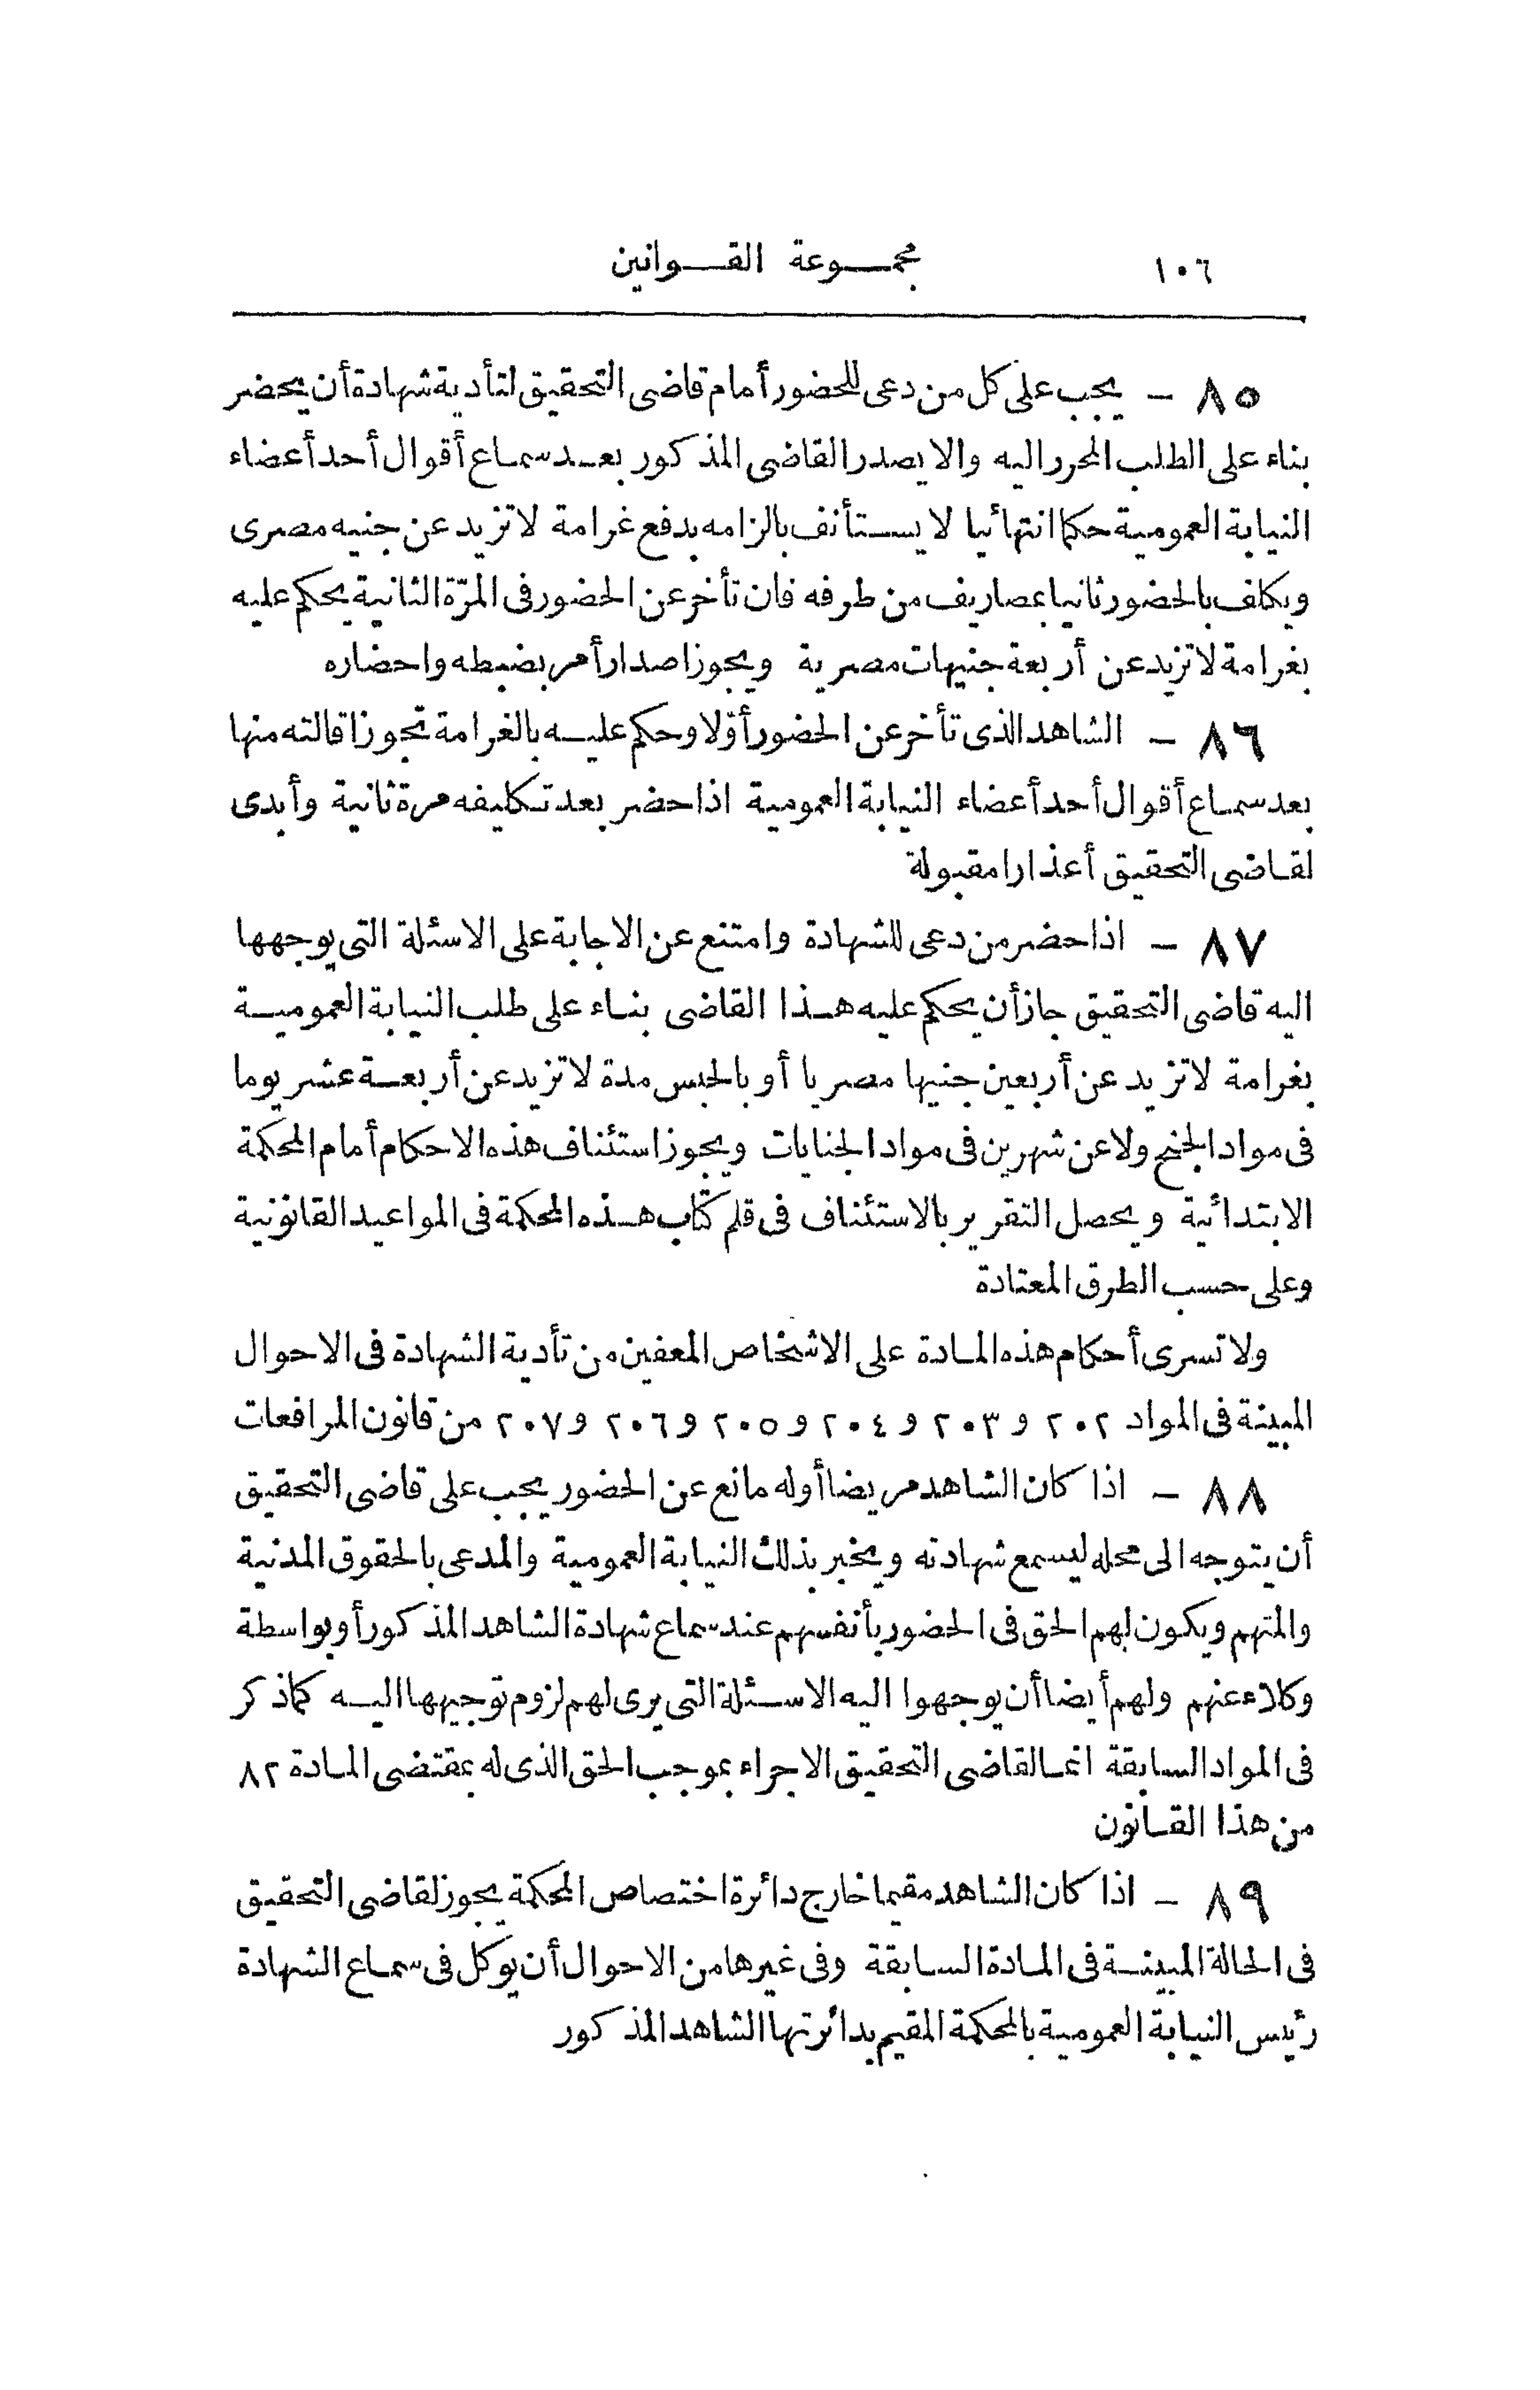 ١٠٦ مجموعة القوانين
٨٥ - يجب على كل من دعى للحضور أمام قاضى التحقيق لتأدية شهادة أن يحضر
بناء على الطلب المحرر اليه والا يصدر القاضى المذكور بعد سماع أقوال أحد أعضاء
النيابة العمومية حكما انتهائيا لا يستأنف بالزامه بدفع غرامة لا تزيد عن جنيه مصرى
ويكلف بالحضور ثانيا بمصاريف من طرفه فان تأخر عن الحضور فى المرّة الثانية يحكم عليه
بغرامة لا تزيد عن أربعة جنيهات مصرية ويجوز اصدار أمر بضبطه واحضاره
٨٦ - الشاهد الذى تأخر عن الحضور أوّلا وحكم عليه بالغرامة تجوز اقالته منها
بعد سماع أقوال أحد أعضاء النيابة العمومية اذا حضر بعد تكليفه مرة ثانية وأبدى
لقاضى التحقيق أعذارا مقبولة
٨٧ - اذا حضر من دعى للشهادة وامتنع عن الاجابة على الاسئلة التى يوجهها
اليه قاضى التحقيق جاز أن يحكم عليه هذا القاضى بناء على طلب النيابة العمومية
بغرامة لا تزيد عن أربعين جنيها مصريا أو بالحبس مدة لا تزيد عن أربعة عشر يوما
فى مواد الجنح ولا عن شهرين فى مواد الجنايات ويجوز استئناف هذه الاحكام أمام المحكمة
الابتدائية ويحصل التقرير بالاستئناف فى قلم كتّاب هذه المحكمة فى المواعيد القانونية
وعلى حسب الطرق المعتادة
ولا تسرى أحكام هذه المادة على الاشخاص المعفين من تأدية الشهادة فى الاحوال
المبينة فى المواد ٢٠٢ و ٢٠٣ و ٢٠٤ و ٢٠٥ و ٢٠٦ و ٢٠٧ من قانون المرافعات
٨٨ - اذا كان الشاهد مريضا أو له مانع عن الحضور يجب على قاضى التحقيق
أن يتوجه الى محله ليسمع شهادته ويخبر بذلك النيابة العمومية والمدعى بالحقوق المدنية
والمتهم ويكون لهم الحق فى الحضور بأنفسهم عند سماع شهادة الشاهد المذكور أو بواسطة
وكلاء عنهم ولهم أيضا أن يوجهوا اليه الاسئلة التى يرى لهم لزوم توجيهها اليه كما ذكر
فى المواد السابقة انما لقاضى التحقيق الاجراء بموجب الحق الذى له بمقتضى المادة ٨٢
من هذا القانون
٨٩ - اذا كان الشاهد مقيما خارج دائرة اختصاص المحكمة يجوز لقاضى التحقيق
فى الحالة المبينة فى المادة السابقة وفى غيرها من الاحوال أن يوكل فى سماع الشهادة
رئيس النيابة العمومية بالمحكمة المقيم بدائرتها الشاهد المذكور